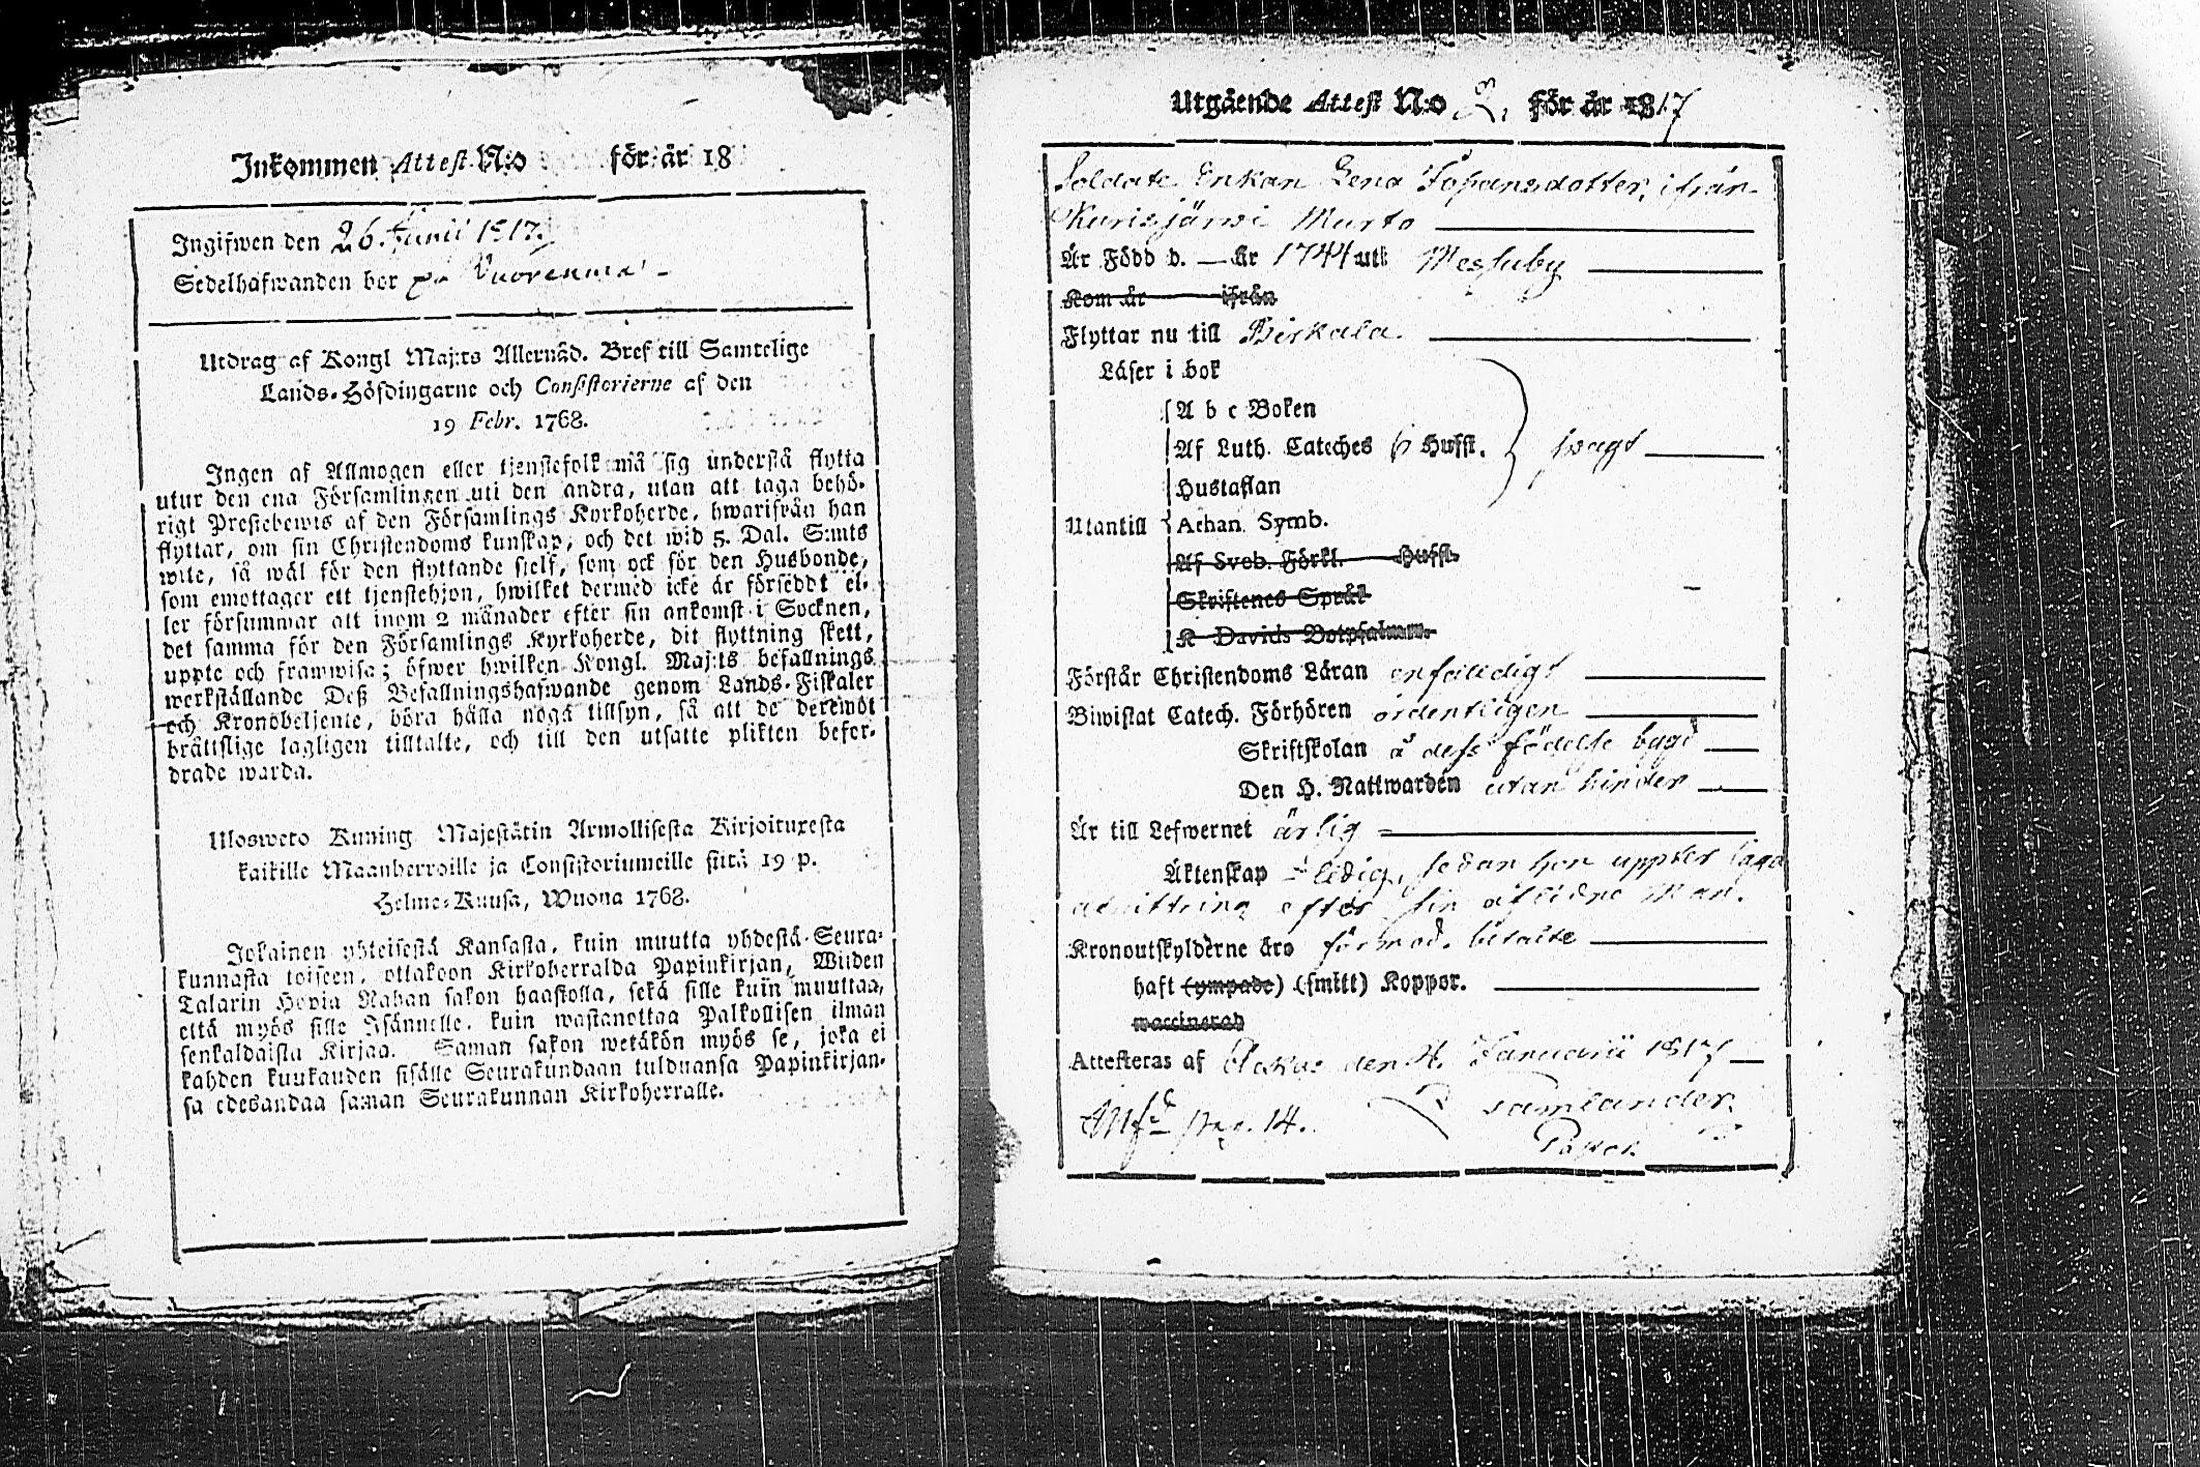 Inkommen Attest N:o för år 18
Ingifwen den 26. Junii 1817.
Sedelhafwanden bor på Vuorenmaa
Utdrag af Kongl Maj:ts Allernåd. Bref till Samtelige
Lands-Höfdingarne och Consistorierne af den
19 Febr. 1768.
Ingen af Allmogen eller tjenstefolk må sig understå flytta
utur den ena Församlingen uti den andra, utan att taga behö-
rigt Prestebewis af den Församlings Kyrkoherde, hwarifrån han
flyttar, om sin Christendoms kunskap, och det wid 5. Dal. S:mts
wite, så wäl för den flyttande sjelf, som ock för den Husbonde,
som emottager ett tjenstehjon, hwilket dermed icke är försedt el-
ler försummar att inom 2 månader efter sin ankomst i Socknen,
det samma för den Församlings Kyrkoherde, dit flyttning skett,
uppte och framwisa; öfwer hwilken Kongl. Maj:ts befallnings
werkställande Deß Befallningshafwande genom Lands-Fiskaler
och Kronobetjente, böra hålla noga tillsyn, så att de derewöt
bråttslige lagligen tilltalte, och till den utsatte plikten befor-
drade warda.
Ulosweto Kuning Majestätin Armollisesta Kirjoituxesta
kaikille Maanherroille ja Consistoriumeille siitä 19 p.
Helme-Kuusa, Wuona 1768.
Jokainen yhteisestä Kansasta, kuin muutta yhdestä Seura-
kunnasta toiseen, ottakoon Kirkoherralda Papinkirjan, Wiiden
Talarin Hopia Rahan sakon haastolla, sekä sille kuin muuttaa,
että myös sille Isännelle, kuin wastanottaa Palkollisen ilman
senkaldaista Kirjaa. Saman sakon wetäkön myös se, joka ei
kahden kuukauden sisälle Seurakundaan tulduansa Papinkirjan-
sa edesandaa saman Seurakunnan Kirkoherralle.
Utgående Attest N:o 2. för år 1817
Soldate Enkan Lena Johansdotter, ifrån
Kurisjärwi Murto
År Född d. — År 1744 uti Messuby
Kom år ifrån
Flyttar nu till Birkala.
Läser i bok
A b c Boken
Af Luth. Cateches 6 Hufst. swagt
Hustaflan
Utantill Athan. Symb.
Af Sveb. Förkl. Hufst.
Skriftenes Språk
K Davids Botpsalmer.
Förstår Christendoms Läran enfaldigt
Biwistat Catech. Förhören ordentligen
Skriftskolan å dess födelse bygd
Den H. Nattwarden utan hinder
Är till Lefwernet ärlig
Äktenskap ledig, sedan hon uppter laga
afwittring efter sin aflidne Man.
Kronoutskylderne äro förmod. betalte
haft (ympade) (smitt) Koppor.
waccinerad
Attesteras af Ackas den 4. Januarii 1817
Msd pag. 14. Tamlander,
Pastor